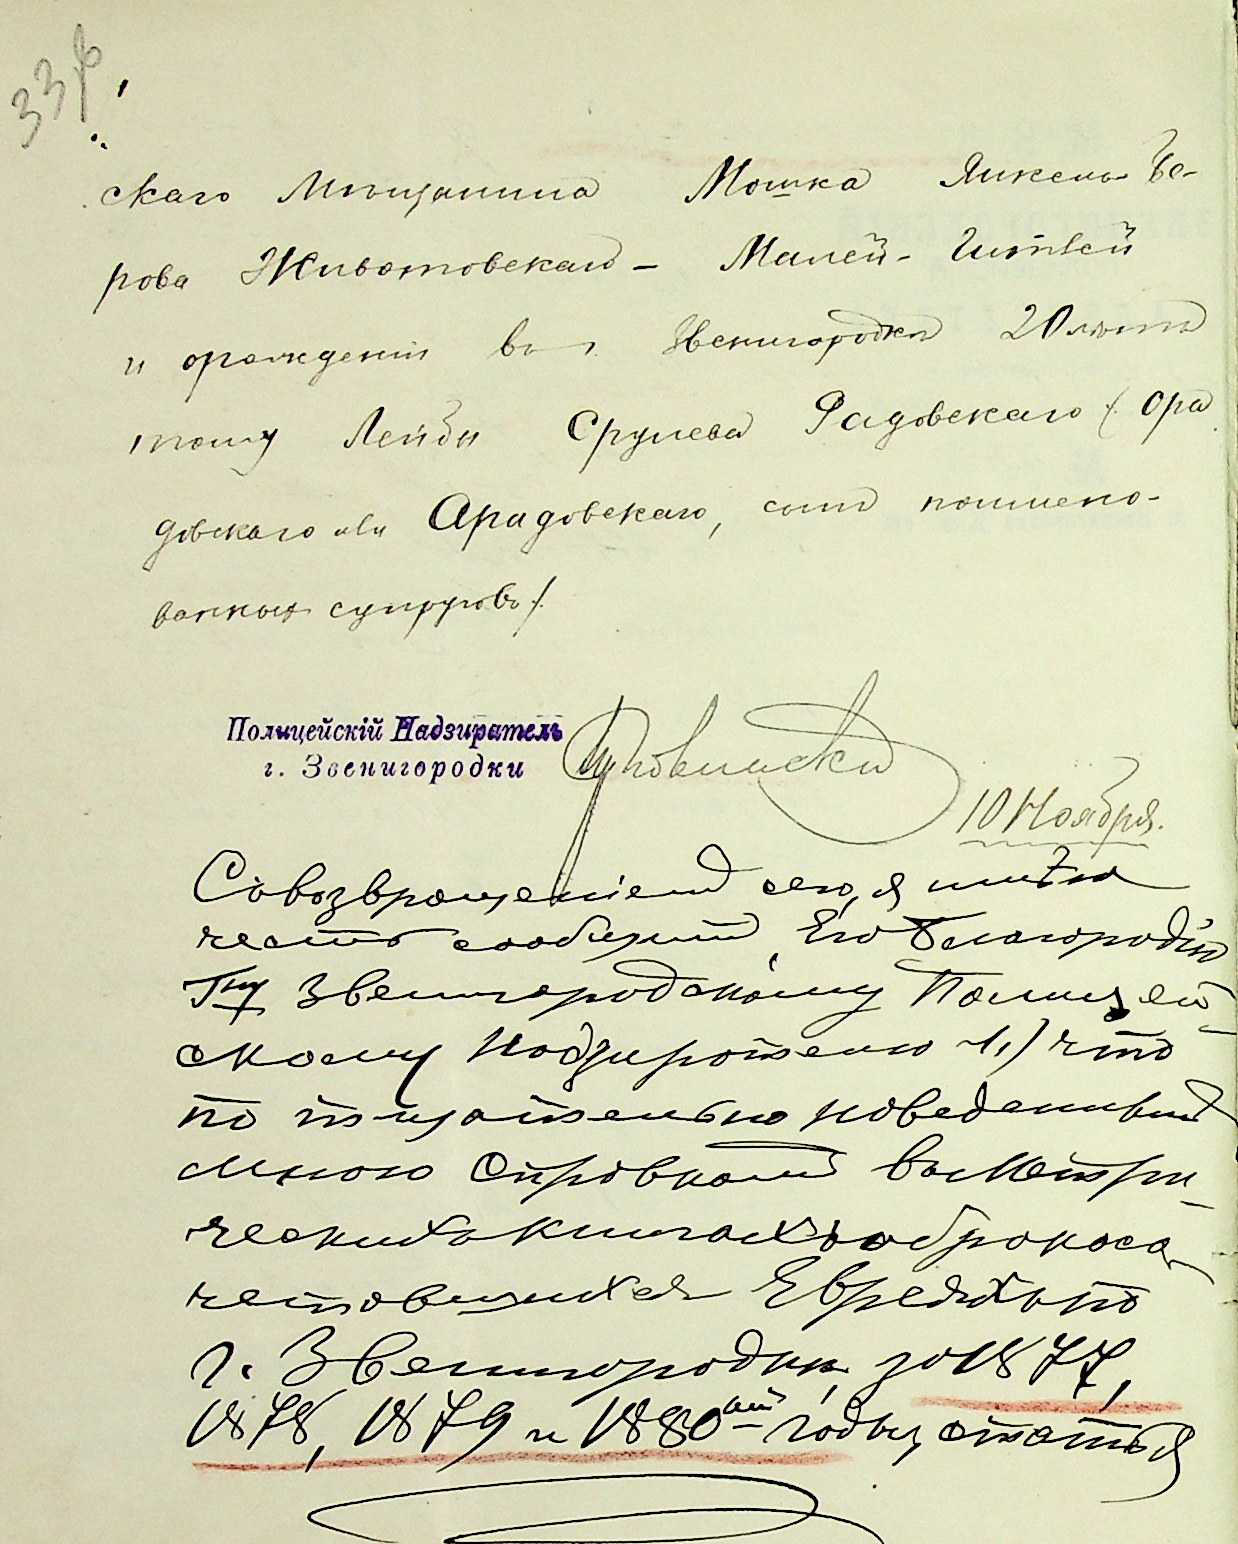 скаго мещанина Мошка Янкель-Бе-
рова Животовскаго – Малей-Гитлей
и о рождении въ г. Звенигородке 20 лета
тому Лейбы Срулева Радовскаго /: Ора
довскаго или Арадовскаго, сына поимено-
ванныхъ супруговъ /:
Полицейскій Надзиратель
г. Звенигородки
10 Ноября.
Съ возвращеніемъ сего, я имѣю
честь сообщить Его Благородію
Гну Звенигородскому Полицей-
скому Надзирателю 1.) что
по тщательно наведеннымъ
мною справкамъ въ Метри-
ческихъ книгахъ о бракосо-
четовшихся Евреяхъ по
г. Звенигородки, за 1877,
1878, 1879 и 1880 годы, статья